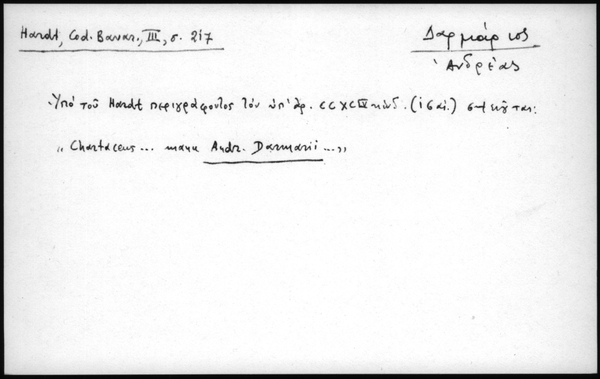 Hardt, Cod. Bavar., III, σ. 217
Δαρμάριος
Ἀνδρέας
Ὑπό τοῦ Hardt περιγράφοντος τόν ὑπ' ἀρ. CCXCIV κώδ. (ις αἰ.) σημειοῦται:
„Chartaceus ... manu Andr. Darmarii ...„